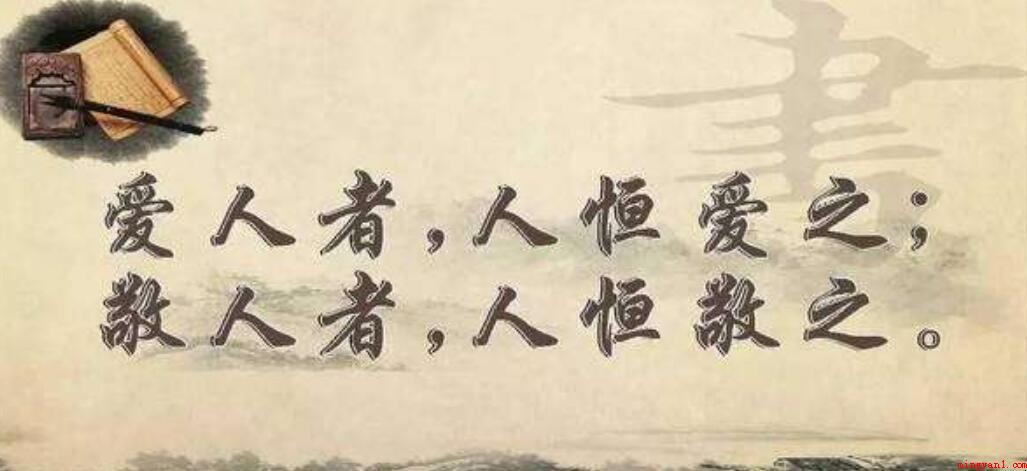 書
爱人者，人恒爱之；
敬人者，人恒敬之。
mingyan1.com